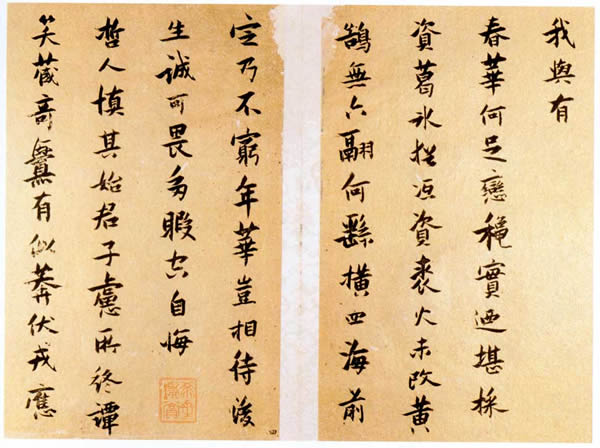 我與有
春華何足戀穠實迺堪採
資葛氷猶沍資裘火未改黃
鵠無六翮何繇橫四海前
定乃不窮年華豈相待後
生誠可畏多暇空自悔
哲人慎其始君子慮所終譚
笑蔵奇釁有似莽伏戎應
四